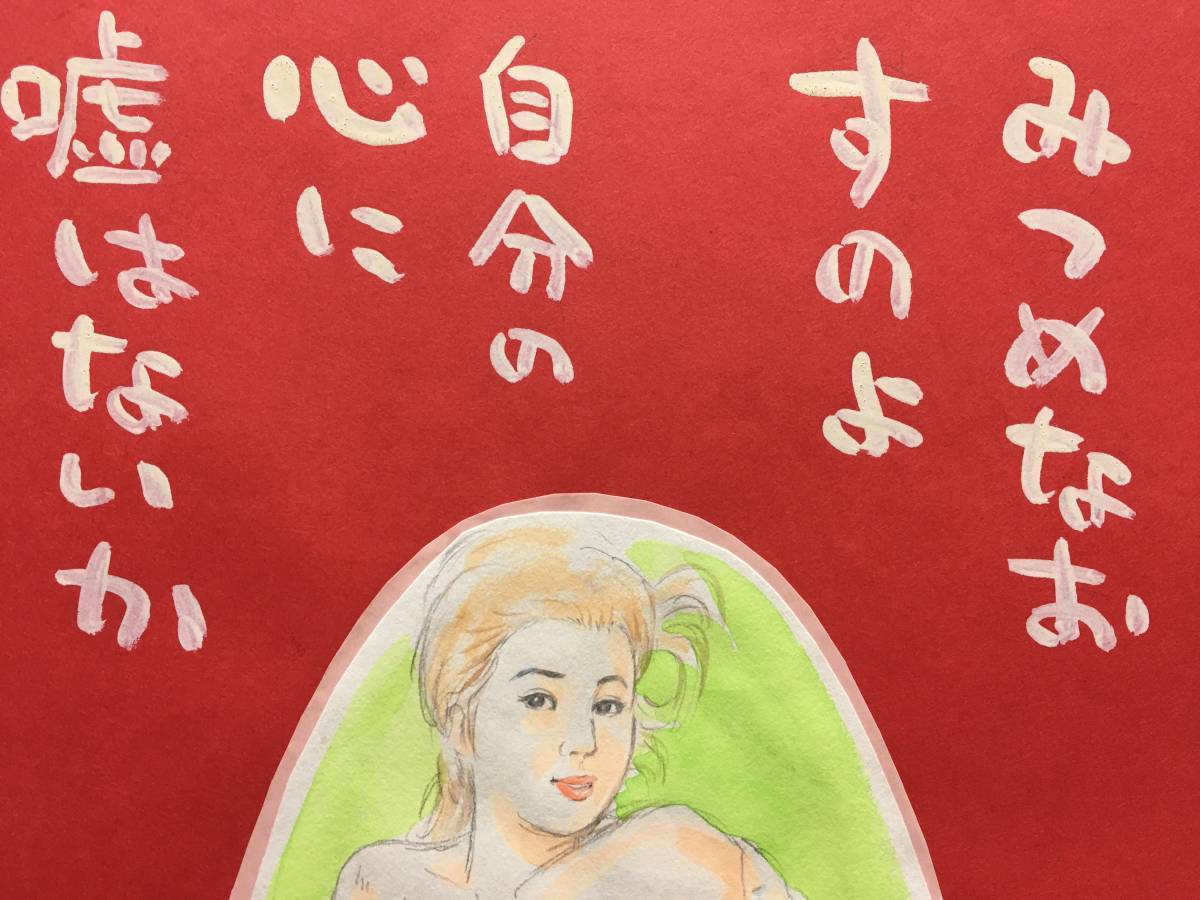 みつめなお
すのよ
自分の
心に
嘘はないか